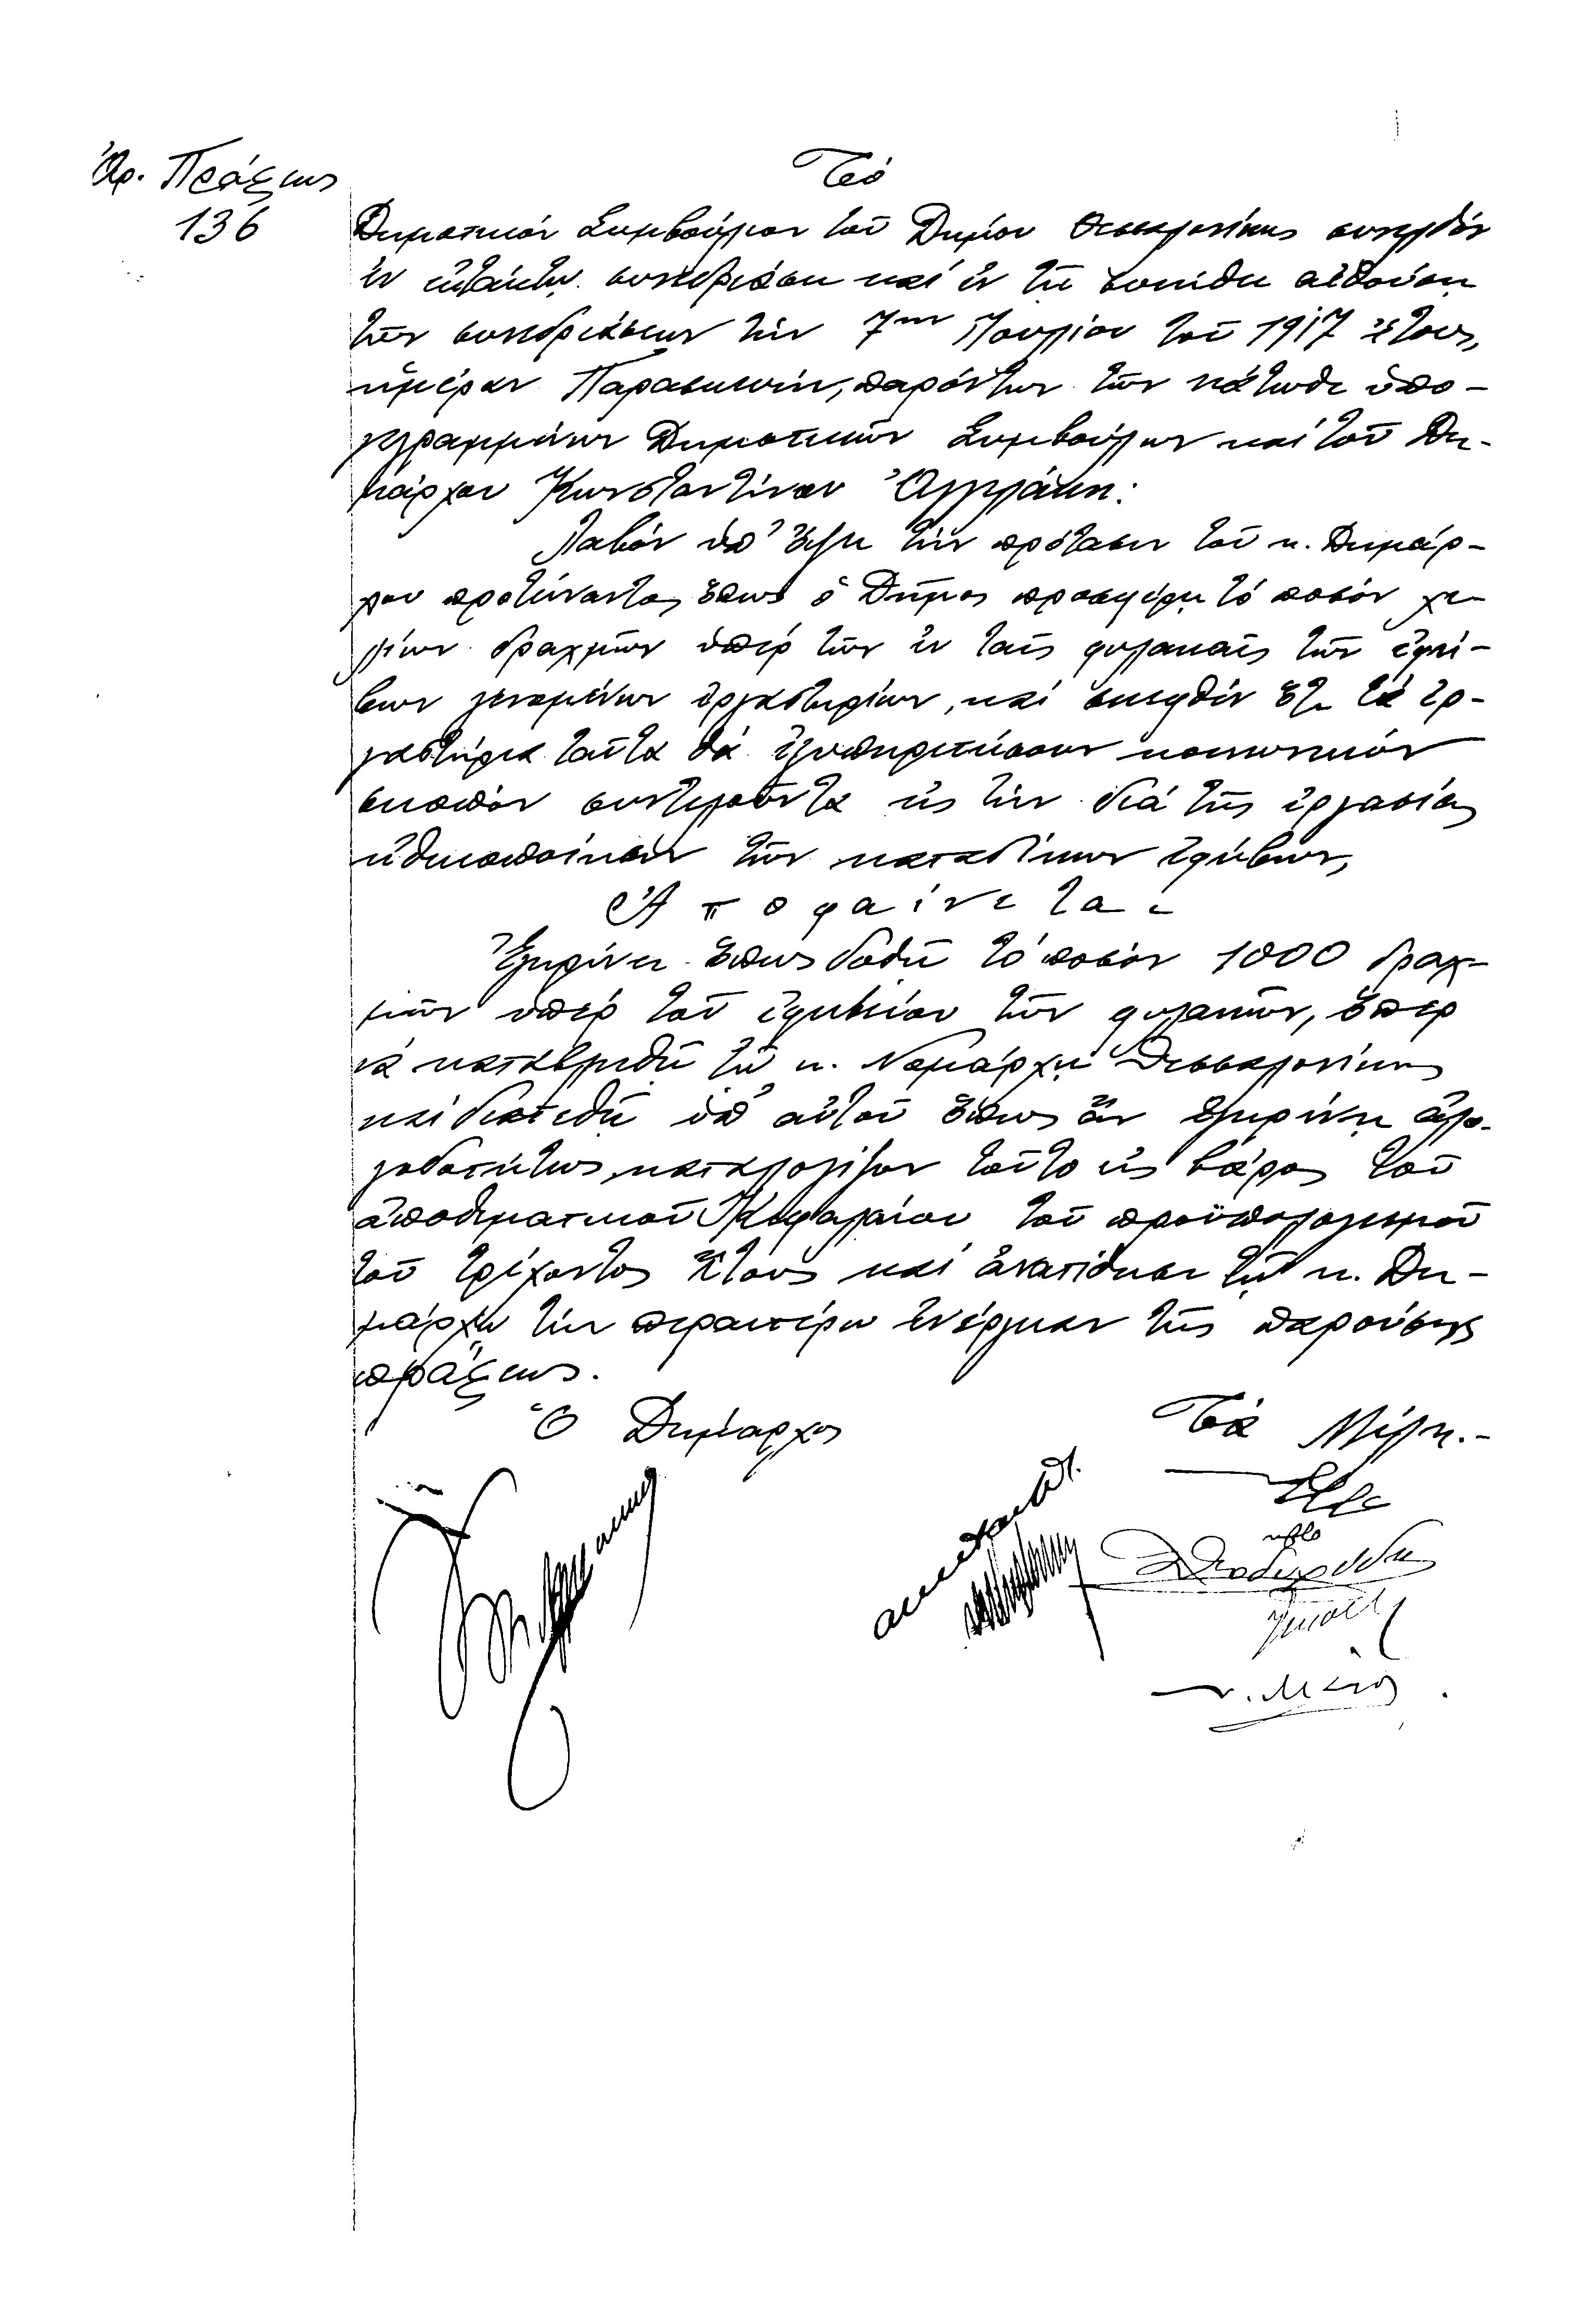 Ἀρ. Πράξεως
136
Τό
Δημοτικόν Συμβούλιον τοῦ Δήμου Θεσσαλονίκης συνελθόν
ἐν ἐκτάκτῳ συνεδριάσει καί ἐν τῇ συνήθει αἰθούσῃ
τῶν συνεδριάσεων τήν 7ην Ἰουλίου τοῦ 1917 ἔτους,
ἡμέραν Παρασκευήν, παρόντων τῶν κάτωθι ὑπο-
γεγραμμένων Δημοτικῶν Συμβούλων καί τοῦ Δη-
μάρχου Κωνσταντίνου Ἀγγελάκη:
Λαβόν ὑπ' ὄψει τήν πρότασιν τοῦ κ. Δημάρ-
χου προτείναντος ὅπως ὁ Δῆμος προσφέρῃ τό ποσόν χι-
λίων δραχμῶν ὑπέρ τῶν ἐν ταῖς φυλακαῖς τῶν ἐφή-
βων γενομένων ἐργαστηρίων, καί σκεφθέν ὅτι τά ἐρ-
γαστήρια ταῦτα θά ἐξυπηρετήσουν κοινωνικόν
σκοπόν συντελοῦντα εἰς τήν διά τῆς ἐργασίας
ἠθικοποίησιν τῶν καταδίκων ἐφήβων,
Ἀποφαίνεται
Ἐγκρίνει ὅπως δοθῇ τό ποσόν 1000 δραχ-
μῶν ὑπέρ τοῦ ἐφηβείου τῶν φυλακῶν, ὅπερ
νά καταβληθῇ τῷ κ. Νομάρχῃ Θεσσαλονίκης
καί διατεθῇ ὑπ' αὐτοῦ ὅπως ἄν ἐγκρίνῃ
καταλογίζον τοῦτο εἰς βάρος τοῦ
ἀποθεματικοῦ Κεφαλαίου τοῦ προϋπολογισμοῦ
τοῦ τρέχοντος ἔτους καί ἀνατίθησι τῷ κ. Δη-
μάρχῳ τήν περαιτέρω ἐνέργειαν τῆς παρούσης
πράξεως.
Ὁ Δήμαρχος
Τά Μέλη.-